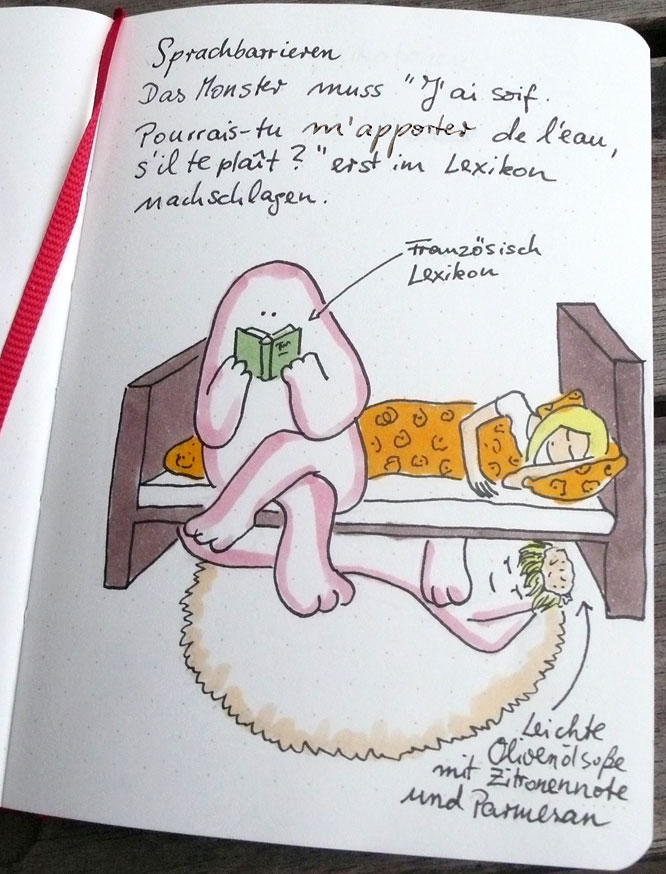 Sprachbarrieren
Das Monster muss "J'ai soif.
Pourrais-tu m'apporter de l'eau,
s'il te plaît?" erst im Lexikon
nachschlagen.
Französisch
Lexikon
Leichte
Olivenölsoße
mit Zitronennote
und Parmesan